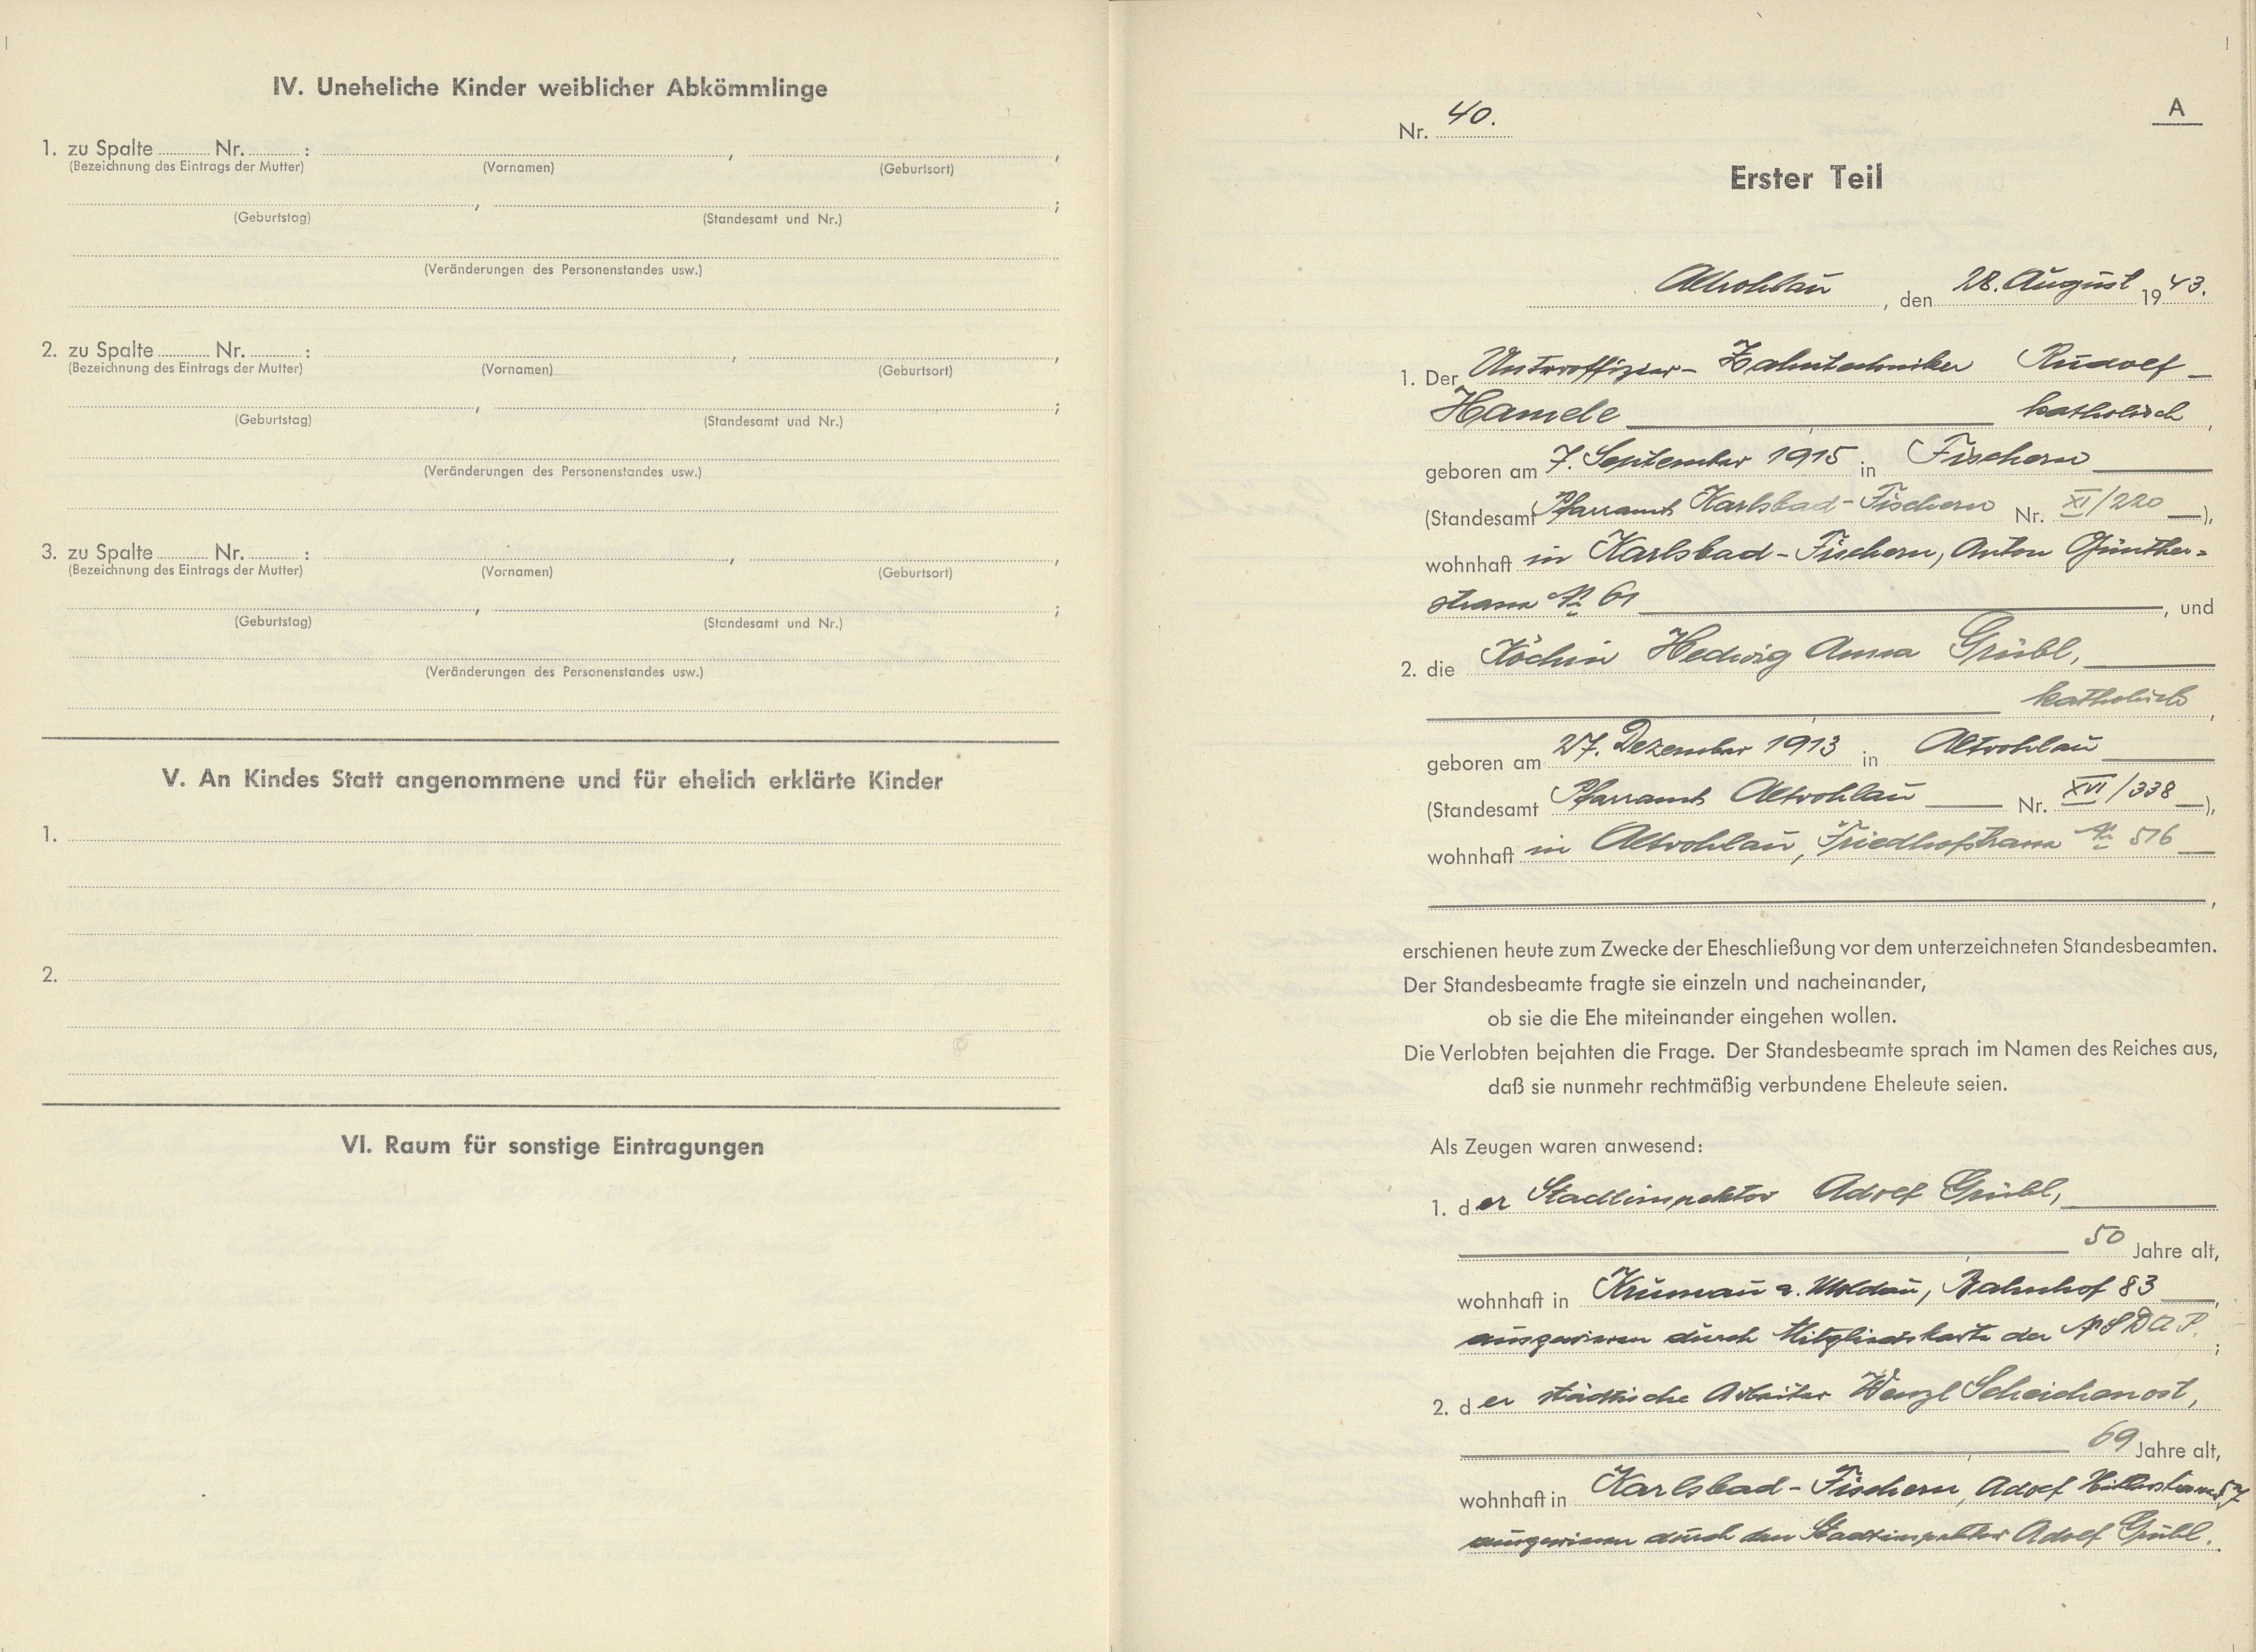 IV. Uneheliche Kinder weiblicher Abkömmlinge
1. zu Spalte ........ Nr. ........ : ........ , ........ ,
(Bezeichnung des Eintrags der Mutter) (Vornamen) (Geburtsort)
........ , ........ ;
(Geburtstag) (Standesamt und Nr.)
(Veränderungen des Personenstandes usw.)
2. zu Spalte ........ Nr. ........ : ........ , ........ ,
(Bezeichnung des Eintrags der Mutter) (Vornamen) (Geburtsort)
........ , ........ ;
(Geburtstag) (Standesamt und Nr.)
(Veränderungen des Personenstandes usw.)
3. zu Spalte ........ Nr. ........ : ........ , ........ ,
(Bezeichnung des Eintrags der Mutter) (Vornamen) (Geburtsort)
........ , ........ ;
(Geburtstag) (Standesamt und Nr.)
(Veränderungen des Personenstandes usw.)
V. An Kindes Statt angenommene und für ehelich erklärte Kinder
1.
2.
VI. Raum für sonstige Eintragungen
A
Nr. 40.
Erster Teil
Altrohlau, den 28. August 1943.
1. Der Unteroffizier- Zahntechniker Rudolf
Hamele katholisch,
geboren am 7. September 1915 in Fischern
(Standesamt Pfarramt Karlsbad-Fischern Nr. XI/220),
wohnhaft in Karlsbad-Fischern, Anton Günther=
strasse Nr. 61, und
2. die Köchin Hedwig Anna Grübl,
katholisch,
geboren am 27. Dezember 1913 in Altrohlau
(Standesamt Pfarramt Altrohlau Nr. XVI/338),
wohnhaft in Altrohlau, Friedhofstrasse Nr. 516
,
erschienen heute zum Zwecke der Eheschließung vor dem unterzeichneten Standesbeamten.
Der Standesbeamte fragte sie einzeln und nacheinander,
ob sie die Ehe miteinander eingehen wollen.
Die Verlobten bejahten die Frage. Der Standesbeamte sprach im Namen des Reiches aus,
daß sie nunmehr rechtmäßig verbundene Eheleute seien.
Als Zeugen waren anwesend:
1. der Stadtinspektor Adolf Grübl,
50 Jahre alt,
wohnhaft in Krumau a. Moldau, Bahnhof 83,
ausgewiesen durch Mitgliedskarte der NSDAP. ;
2. der städtische Arbeiter Wenzl Scheichenost,
69 Jahre alt,
wohnhaft in Karlsbad-Fischern, Adolf Hitlerstrasse 57
ausgewiesen durch den Stadtinspektor Adolf Grübl.